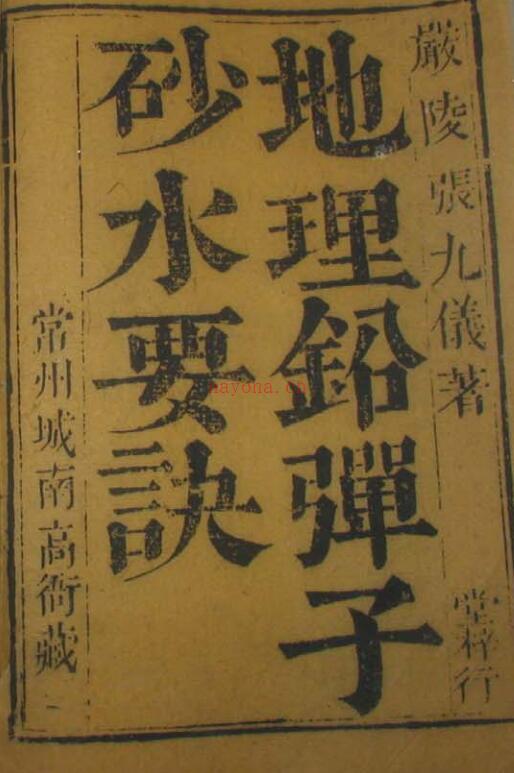 嚴陵張九儀著
堂梓行
地理鉛彈子
砂水要訣
常州城南高衙藏
nayona.cn